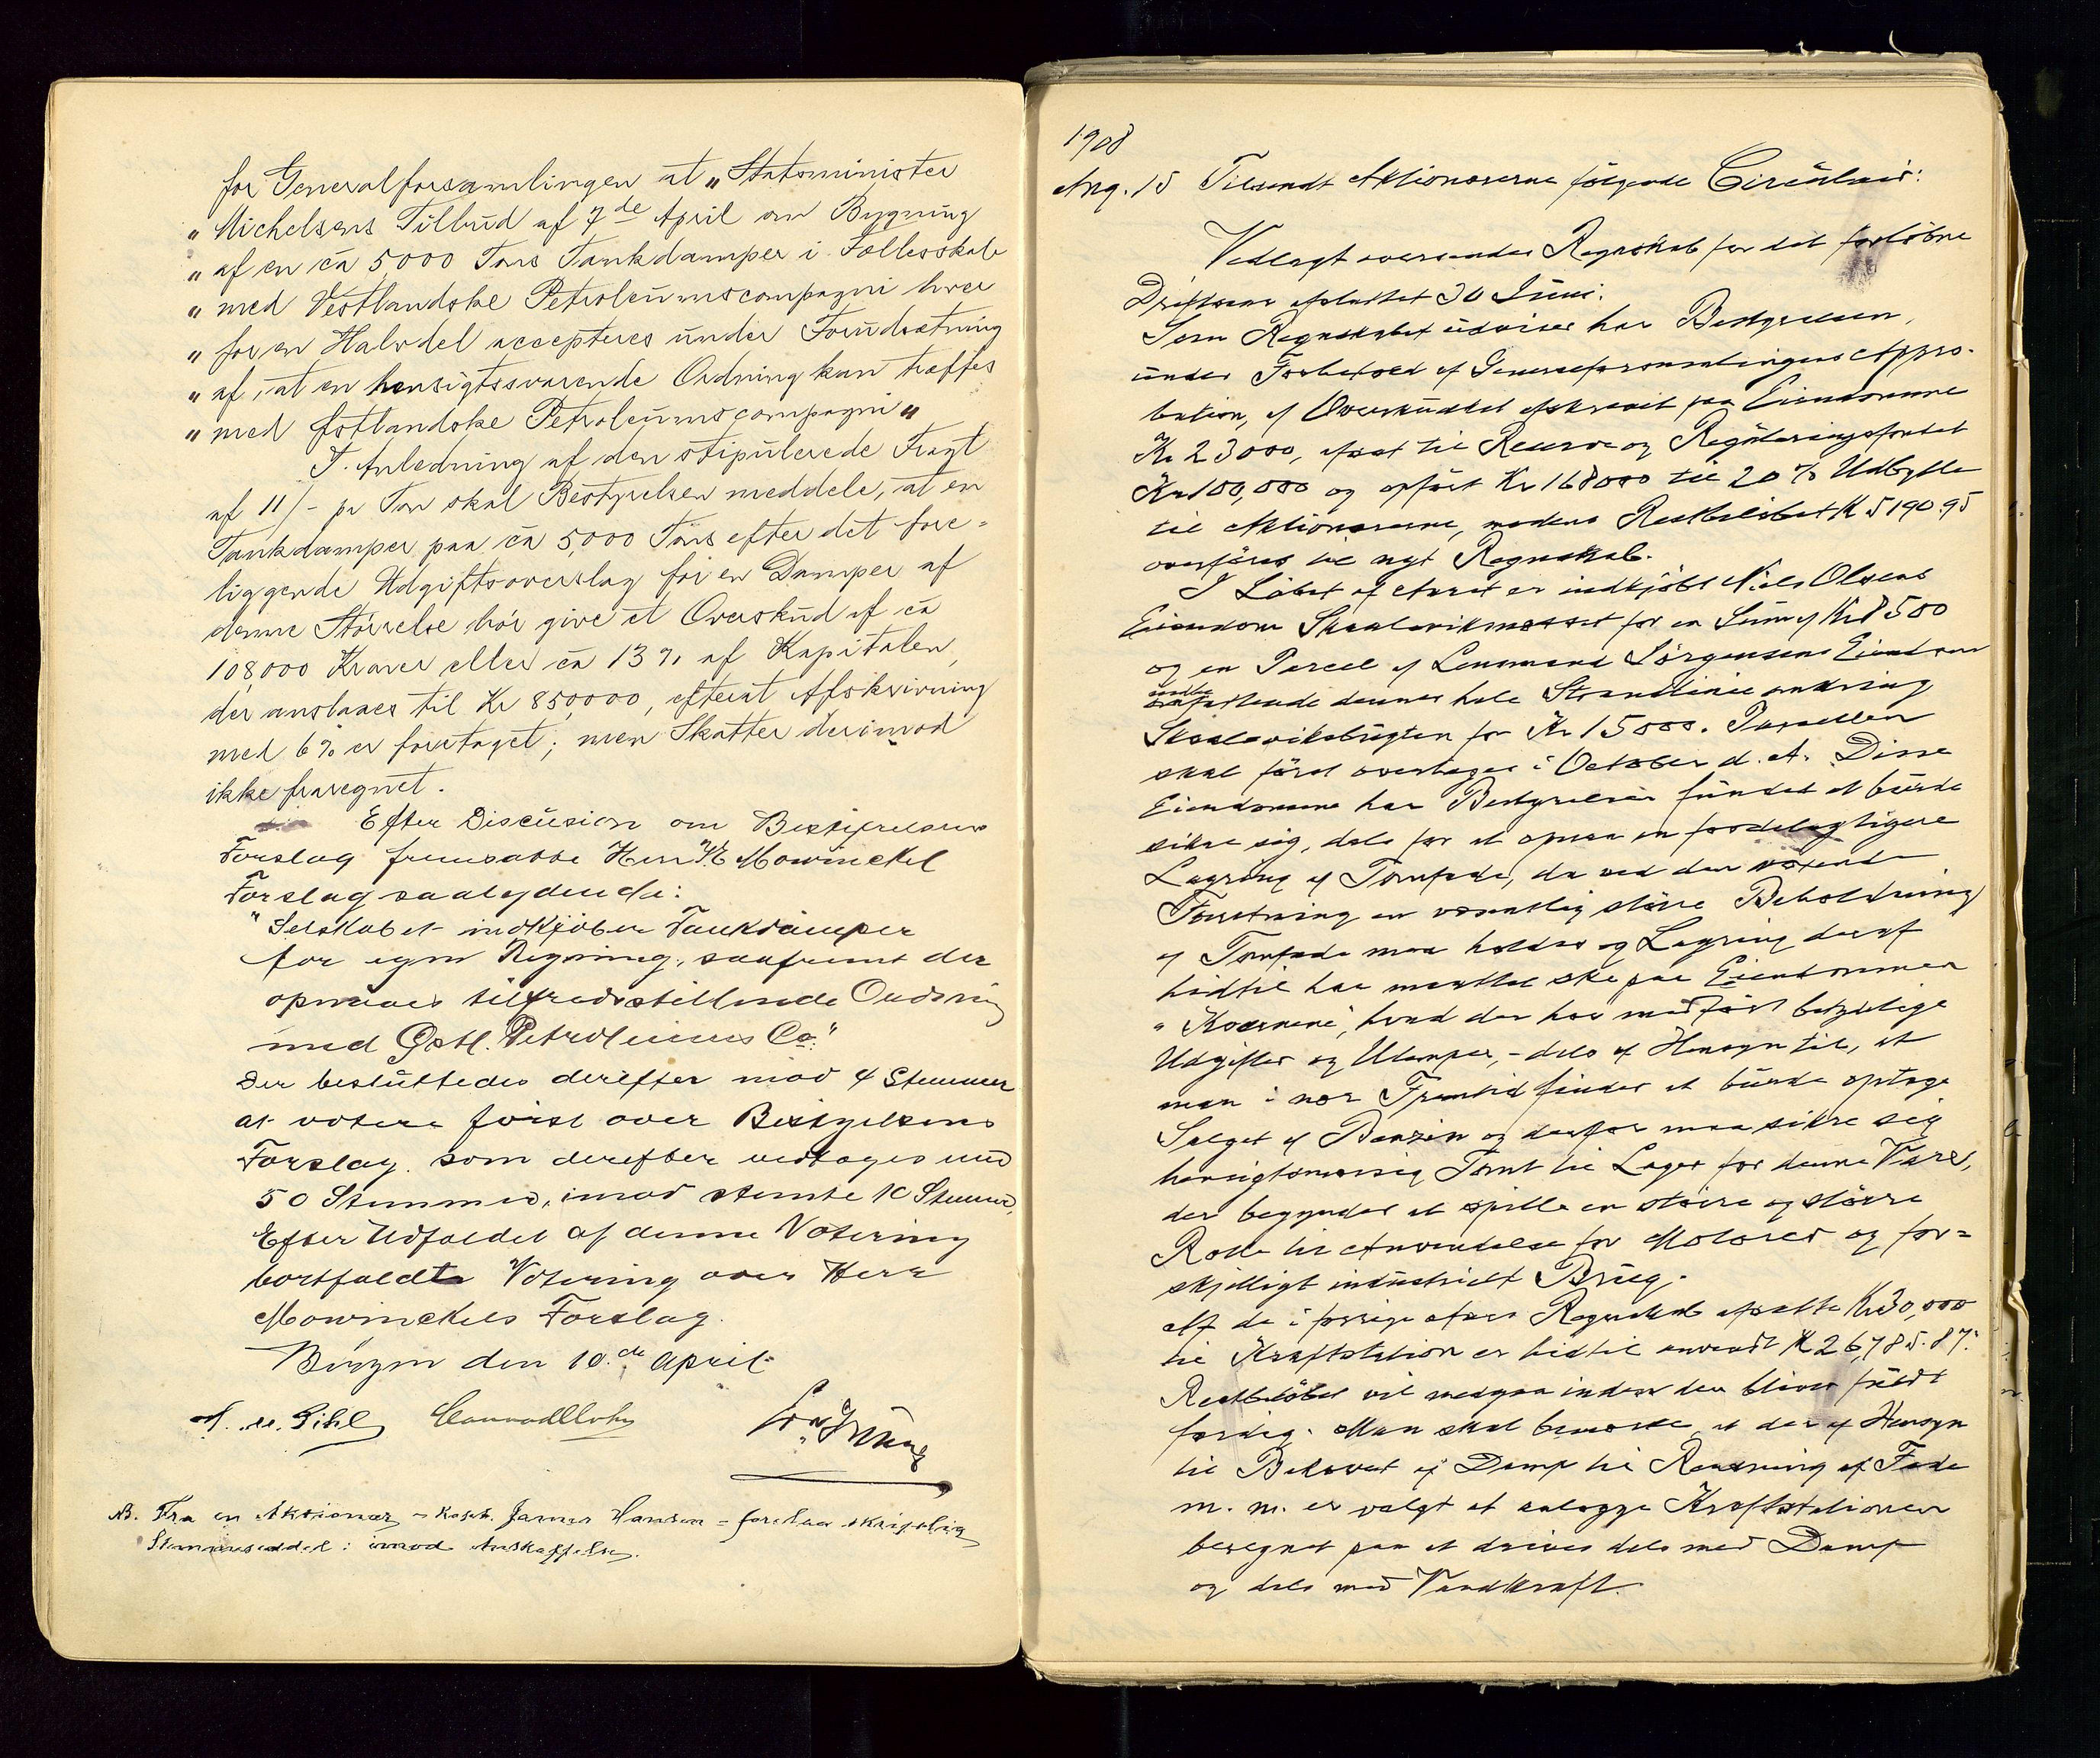 for Generalforsamlingen at „Statsminister
„ Michelsens Tilbud af 7de April om Bygning
„ af en ca 5000 Tons Tankdamper i Fællesskab
„ med Vestlandske Petroleumscompagni hver
„ for en Halvdel accepteres under Forudsætning
„ af, at en hensigtssvarende Ordning kan træffes
„ med Østlandske Petroleumscompagni„
I Anledning af den stipulerede Fragt
af 11/- pr Ton skal Bestyrelsen meddele, at en
Tankdamper paa ca 5,000 Tons efter det fore=
liggende Udgiftsoverslag for en Damper af
denne Størrelse bør give et Overskud af ca
108,000 Kroner eller ca 13 % af Kapitalen,
der anslaaes til Kr 850,000, efterat Afskrivning
med 6 % er foretaget; men Skatter derimod
ikke fraregnet.
Efter Discusion om Bestyrelsens
Forslag fremsatte Herr Mowinckel
Forslag saalydende:
"Selskabet indkjøber Tankdamper
for egen Regning, saafremt der
opnaaes tilfredsstillende Ordning
med Østl. Petroleums Co."
Der besluttedes derefter mod 4 Stemmer
at votere først over Bestyrelsens
Forslag. som derefter vedtoges med
50 Stemmer, imod stemte 10 Stemmer,
Efter Udfaldet af denne Votering
bortfaldt Votering over Herr
Mowinckels Forslag.
Bergen den 10.de April.
NB. Fra en Aktionær - James Hansen - forelaa skriftlig
Stemmeseddel: imod Anskaffelse.
1908
Aug. 15 Tilsendt Aktionærerne følgende Circulair:
Vedlagt oversendes Regnskab for det forløbne
Driftsaar afsluttet 30 Juni.
Som Regnskabet udviser har Bestyrelsen,
under Forbehold af Generalforsamlingens Appro-
bation, af Overskuddet afskrevet paa Eiendommene
Kr 23000, afsat til Reserve og Reguleringsfondet
Kr 100,000 og opført Kr 168000 til 20 % Udbytte
til Aktionærerne, medens Restbeløbet Kr 5190.95
overføres til nyt Regnskab.
I Løbet af Aaret er indkjøbt Niels Olsens
Eiendom Skaalevik for en Sum af Kr 8500
og en Parcel af Lensmand Jørgensens Eiendom
omfattende dennes hele Strandlinie omkring
Skaaleviksbugten for Kr 15000. Parcellen
skal først overtages i October d. A. Disse
Eiendomme har Bestyrelsen fundet at burde
sikre sig, dels for at opnaa en fordelagtigere
Lagring af Tomfade, da ved den voxende
Forretning en væsentlig større Beholdning
af Tomfade maa holdes og Lagring deraf
hidtil har maattet ske paa Eiendommen
„ Kværnene", hvad der har medført betydelige
Udgifter og Ulemper, - dels af Hensyn til, at
man i nær Fremtid finder at burde optage
Salget af Benzin og derfor maa sikre sig
hensigtsmæssig Tomt til Lager for denne Vare,
der begynder at spille en større og større
Rolle til Anvendelse for Motorer og for=
skjelligt industrielt Brug.
Af de i forrige Aars Regnskab afsatte Kr 30,000
til Kraftstation er hidtil anvendt Kr 26,785.87.
Restbeløbet vil medgaa inden den bliver fuldt
færdig. Man skal bemærke, at der af Hensyn
til Behovet af Damp til Rensning af Fade
m. m. er valgt at anlægge Kraftstationen
beregnet paa at drives dels med Damp
og dels med Vandkraft.